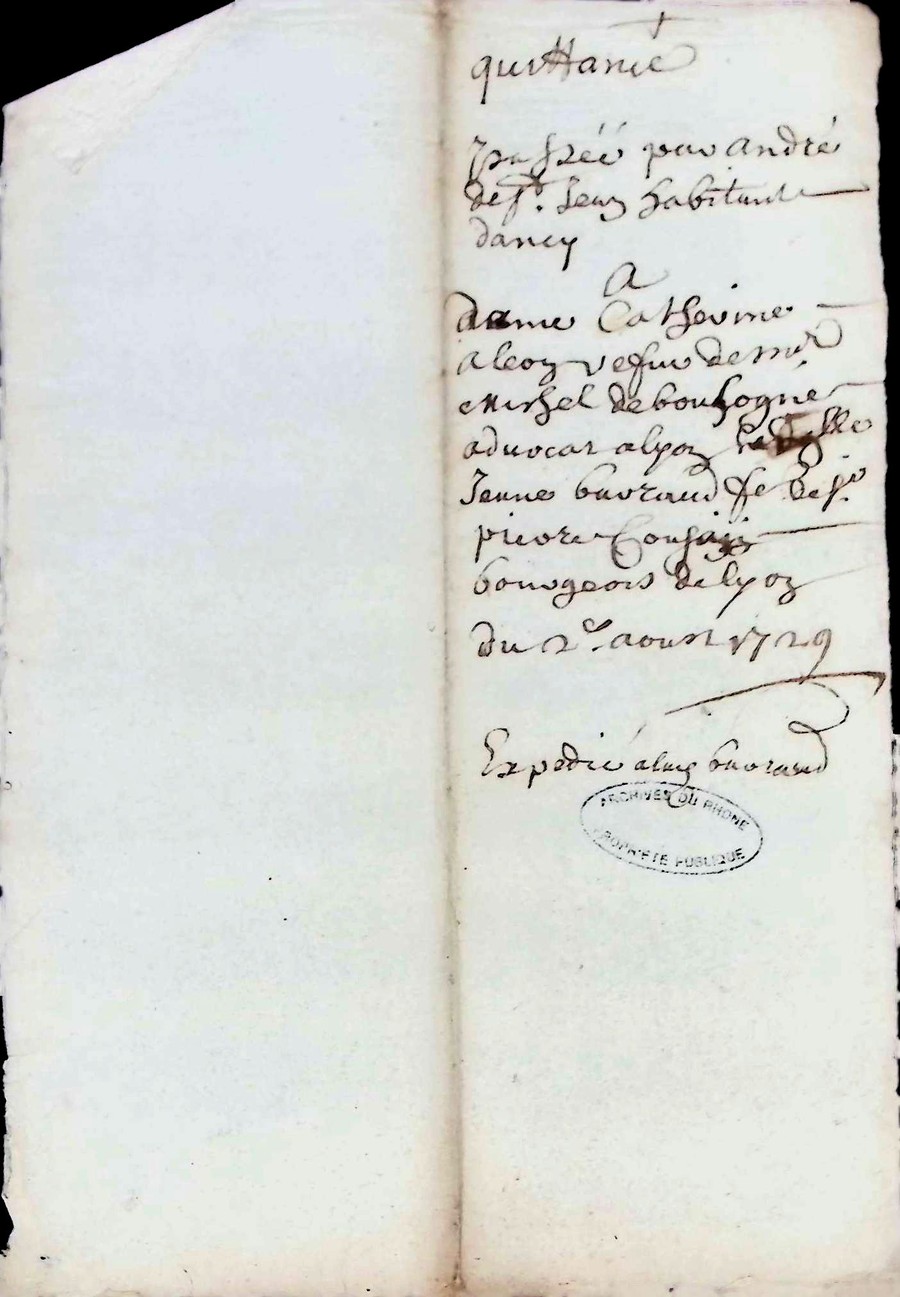 quittance
passéé par andré
de st. Jean habitant
dancy
A
dame Catherine
aleon vefve de mr
Michel de bouliogne
advocat a lyon & dlle
Jeanne burtaud fe de sr
pierre
bourgeois de lyon
du 2e. aoust 1729
Expedié a lad burtaud
ARCHIVES DU RHONE
PROPRIETE PUBLIQUE